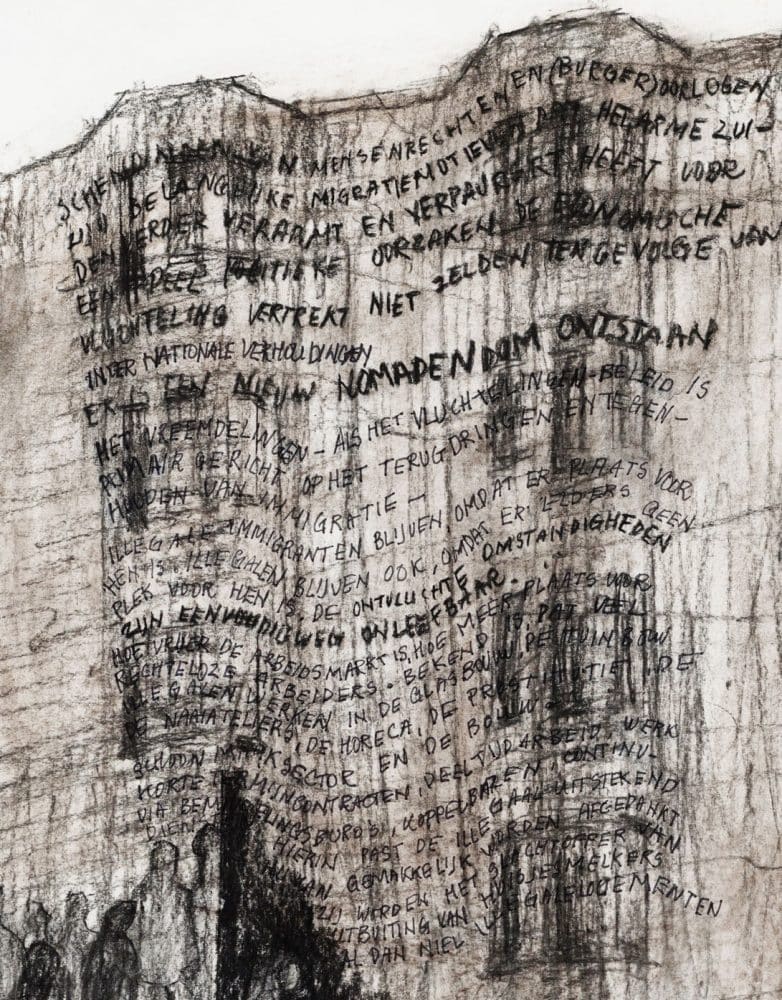 SCHENDINGEN VAN MENSENRECHTEN EN (BURGER)OORLOGEN
ZIJN BELANGRIJKE MIGRATIEMOTIEVEN DAT HET ARME ZUI-
DEN VERDER VERARMT EN VERPAUPERT HEEFT VOOR
EEN DEEL POLITIEKE OORZAKEN DE ECONOMISCHE
VLUCHTELING VERTREKT NIET ZELDEN TEN GEVOLGE VAN
INTERNATIONALE VERHOUDINGEN
ER IS EEN NIEUW NOMADENDOM ONTSTAAN
HET VREEMDELINGEN- ALS HET VLUCHTELINGEN-BELEID IS
PRIMAIR GERICHT OP HET TERUGDRINGEN EN TEGEN-
HOUDEN VAN IMMIGRATIE -
ILLEGALE IMMIGRANTEN BLIJVEN OMDAT ER PLAATS VOOR
HEN IS. ILLEGALEN BLIJVEN OOK, OMDAT ER ELDERS GEEN
PLEK VOOR HEN IS, DE ONTVLUCHTE OMSTANDIGHEDEN
ZIJN EENVOUDIGWEG ONLEEFBAAR.
HOE VRIJER DE ARBEIDSMARKT IS, HOE MEER PLAATS VOOR
RECHTELOZE ARBEIDERS. BEKEND IS DAT VEEL
ILLEGALEN WERKEN IN DE GLASBOUW, DE TUINBOUW
DE NAAIATELIERS, DE HORECA, DE PROSTITUTIE, DE
SCHOONMAAKSECTOR EN DE BOUW.
KORTE TERMIJNCONTRACTEN, DEELTIJDARBEID, WERK
VIA BEMIDDELINGSBURO'S, KOPPELBAZEN, CONTINU-
DIEN HIERIN PAST DE ILLEGAAL UITSTEKEND
GEMAKKELIJK WORDEN AFGEDANKT
ZIJ WERDEN HET SLACHTOFFER VAN
UITBUITING VAN HUISJESMELKERS
AL DAN NIET ILLEGALE LOGEMENTEN